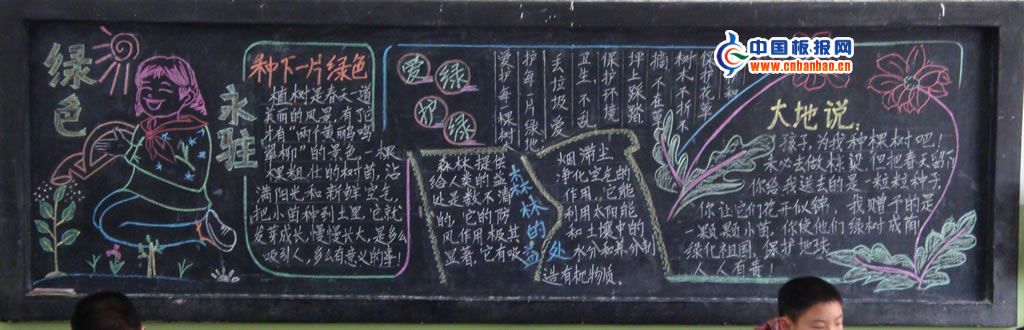 绿色
永驻
种下一片绿色
植树是春天一道
美丽的风景,有了它
才有“两个黄鹂鸣
翠柳”的景色,一棵
棵粗壮的树苗,沾
满阳光和新鲜空气,
把小苗种到土里,它就
发芽成长,慢慢长大,是多么
吸引人,多么有意义的事!
爱绿
护绿
爱护每一棵树
护每一片绿地
丢垃圾爱
卫生不乱
保护环境
坪上踩踏
摘不在草
树木不折不
护花草
森林的益处
森林提供
给人类的益
处是数不清
的,它的防
风作用极其
显著,它有吸
烟滞尘
净化空气的
作用,它能
利用太阳能
和土壤中的
水分和养分制
造有机物质。
大地说:
孩子,为我种棵树吧!
未必去做栋梁,但把春天留下
你给我送去的是一粒粒种子
你让它们花开似锦,我赠予的是
一颗颗小苗,你使他们绿树成荫
绿化祖国,保护地球
人人有责!
中国板报网
www.cnbanbao.cn